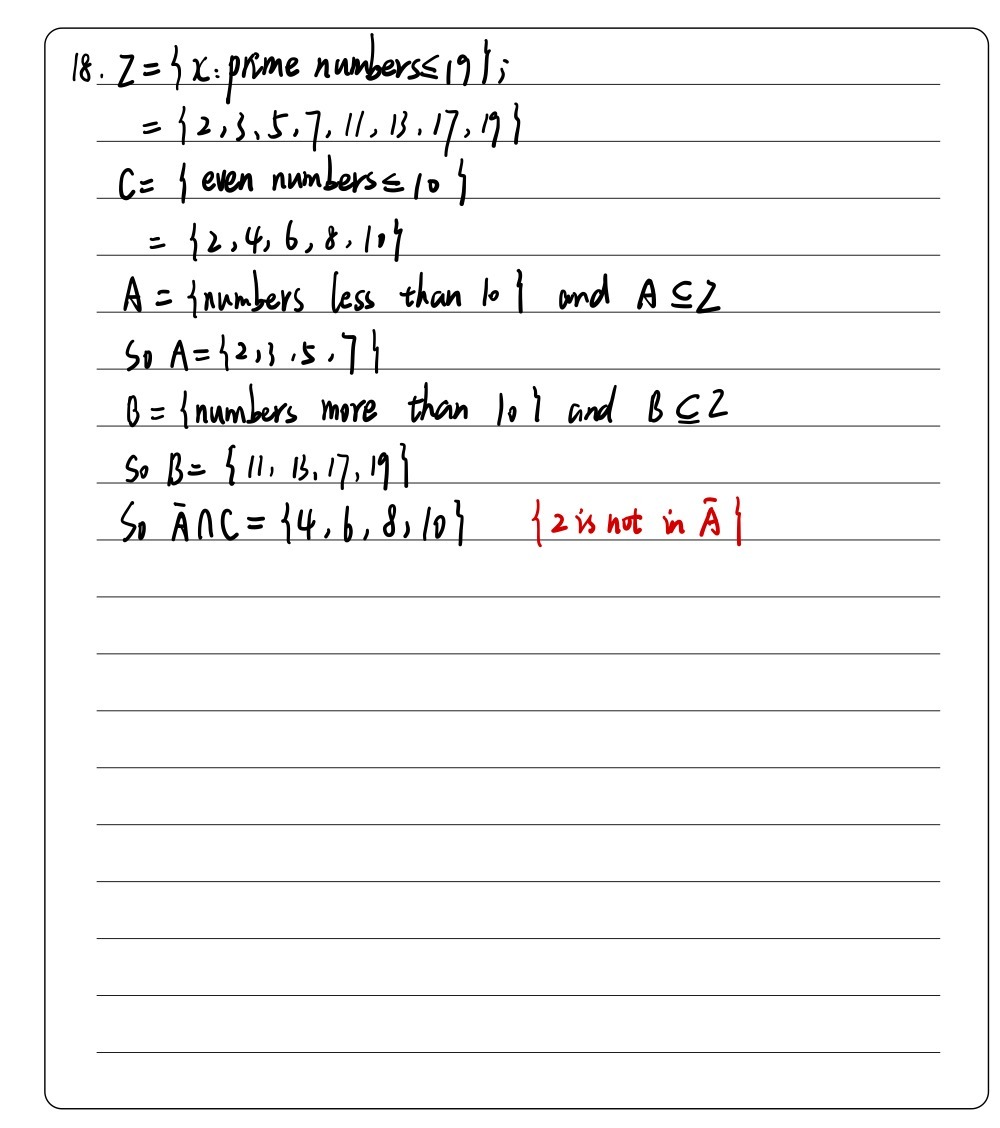 18. Z = {x: prime numbers ≤ 19};
= {2, 3, 5, 7, 11, 13, 17, 19}
C = {even numbers ≤ 10}
= {2, 4, 6, 8, 10}
A = {numbers less than 10} and A ⊆ Z
So A = {2, 3, 5, 7}
B = {numbers more than 10} and B ⊆ Z
So B = {11, 13, 17, 19}
So Ā ∩ C = {4, 6, 8, 10} {2 is not in Ā}